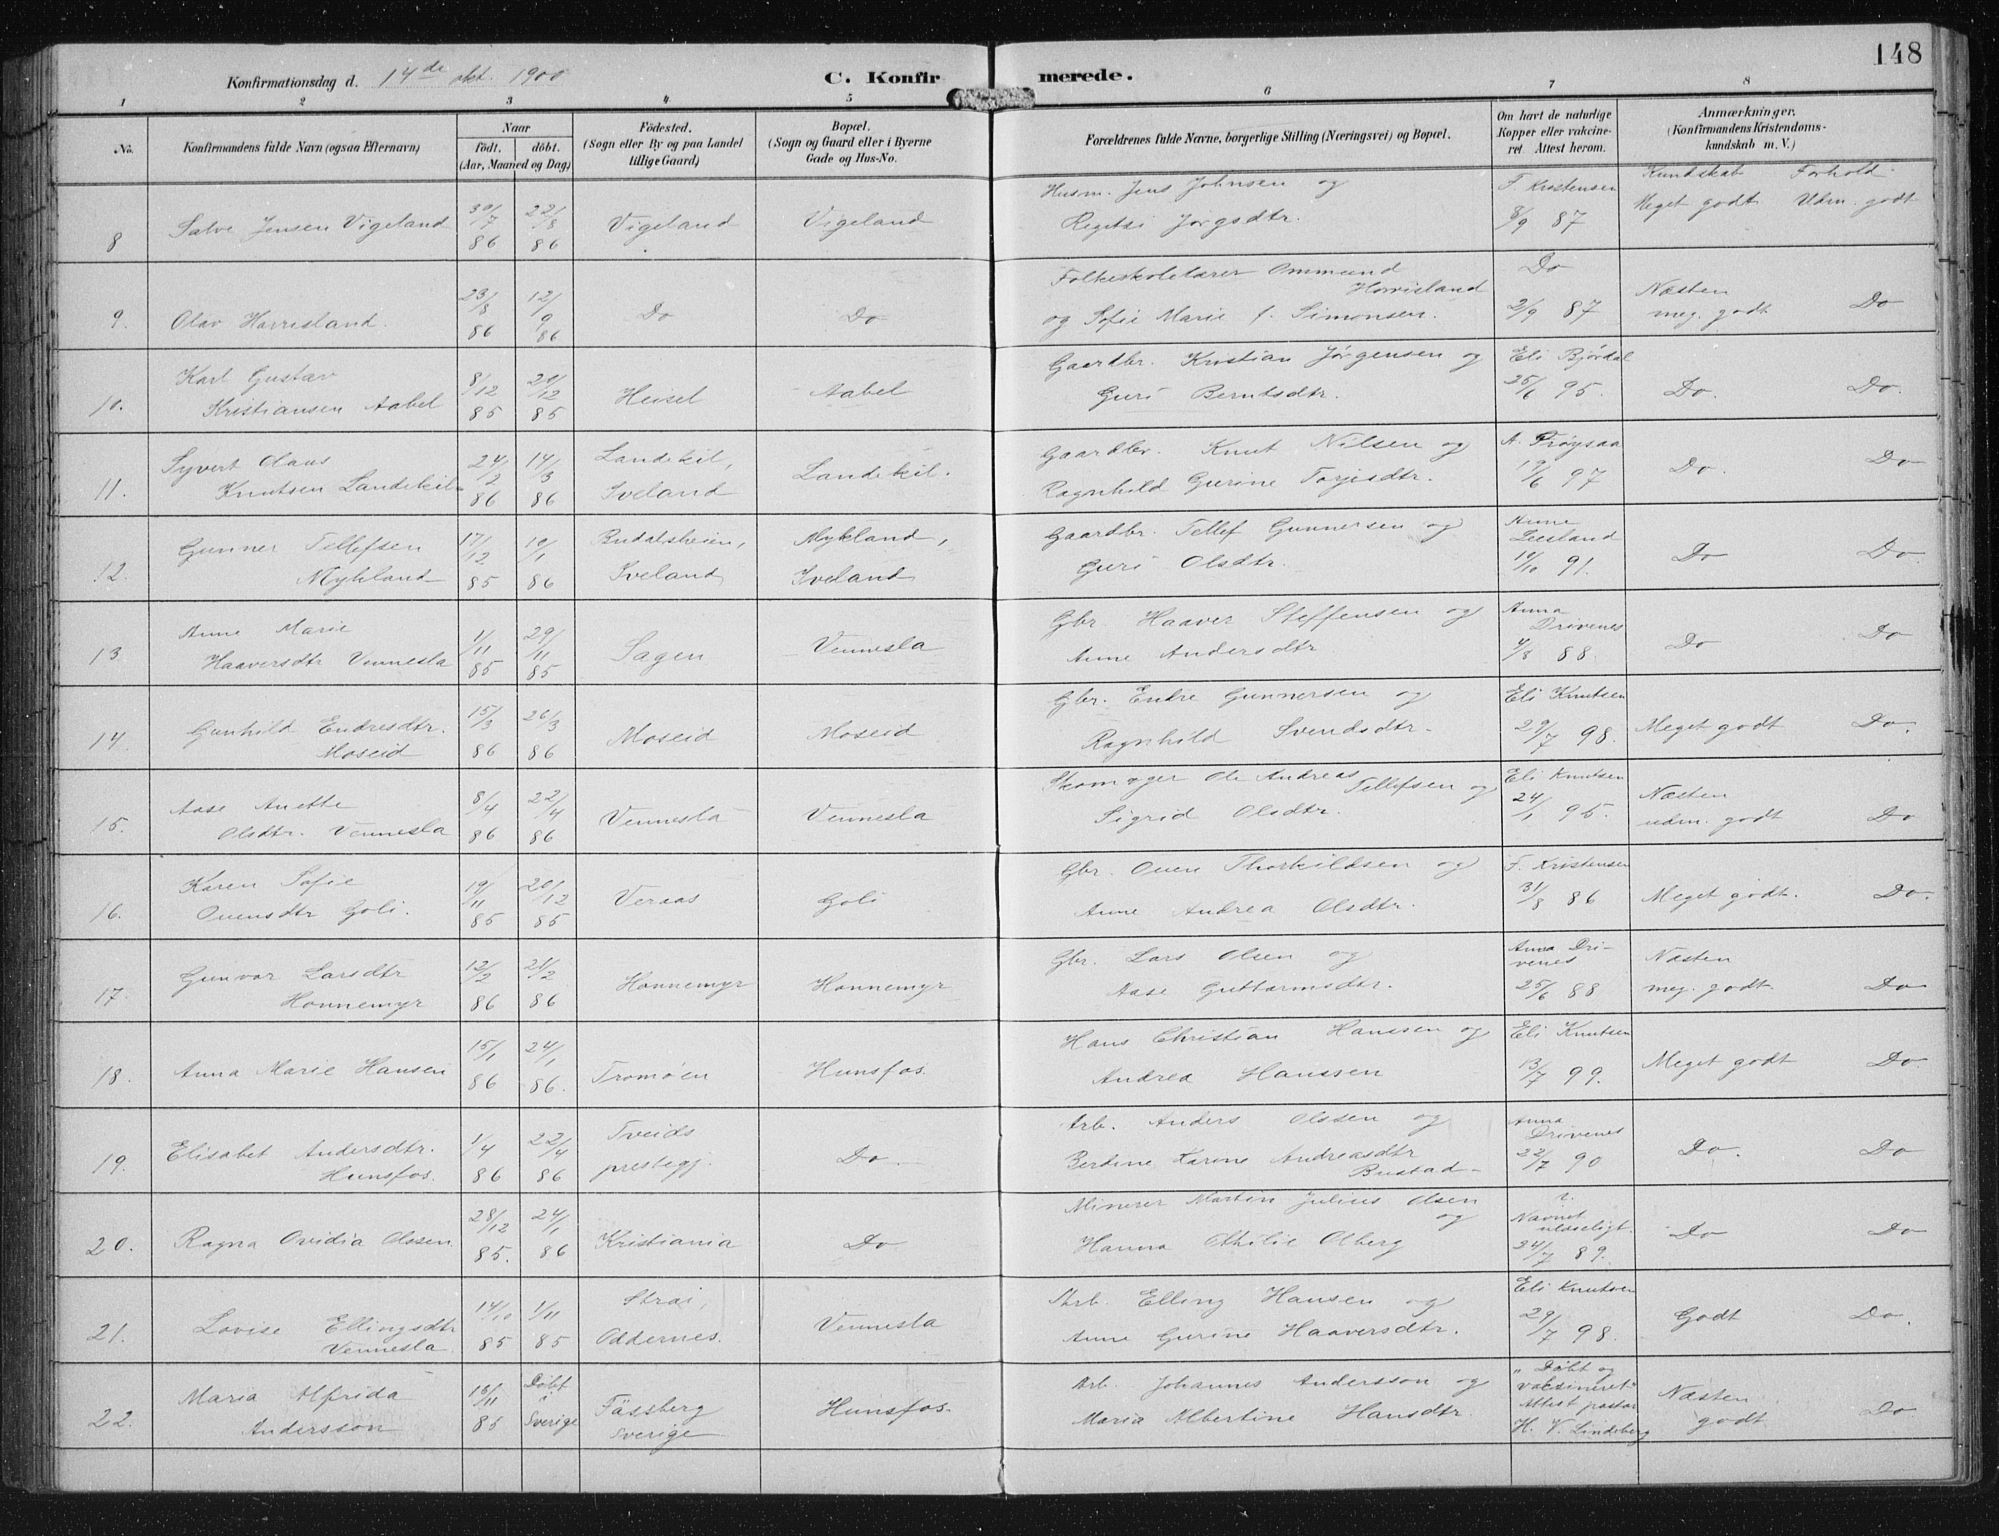 148
Konfirmationsdag d. 14de okt. 1900
C. Konfirmerede.
1 2 3 4 5 6 7 8
No. Konfirmandens fulde Navn (ogsaa Efternavn) Naar födt. döbt. (Aar, Maaned og Dag) Födested. (Sogn eller By og paa Landet tillige Gaard) Bopæl. (Sogn og Gaard eller i Byerne Gade og Hus-No. Forældrenes fulde Navne, borgerlige Stilling (Næringsvei) og Bopæl. Om havt de naturlige Kopper eller vakcineret. Attest herom. Anmærkninger. (Konfirmandens Kristendomskundskab m. V.)
Kundskab Forhold
8 Salve Jensen Vigeland 30/7 86 22/8 86 Vigeland Vigeland Husm. Jens Johnsen og F. Kristensen Meget godt Udm. godt
Regitzi Jørgsdtr. 8/9 87
9. Olav Horrisland. 23/8 86 12/9 86 Do Do Folkeskolelærer Ommund Horrisland Do Næsten
og Sofie Marie f. Simonsen. 2/9 87 meg. godt Do
10. Karl Gustav 8/12 85 20/12 85 Heisel Aabel Gaardbr. Kristian Jørgensen og Eli Bjørdal
Kristiansen Aabel Guri Berntsdtr. 25/6 95. Do. Do.
11. Syvert Olaus 24/2 86 14/3 86 Landekil, Landekil. Gaardbr. Knut Nilsen og A. Frøysaa
Knutsen Landekil Iveland Ragnhild Gurine Torjesdtr. 19/6 97 Do. Do
12. Gunner Tellefsen 17/12 85 10/1 86 Budalsheien, Mykland, Gaardbr. Tellef Gunnersen og Anne Leesland
Mykland Iveland Iveland Guri Olsdtr. 10/10 91. Do Do.
13. Anne Marie 1/11 85 29/11 85 Sagen Vennesla Gbr. Haaver Steffensen og Anna Drivenes
Haaversdtr Vennesla Anne Andersdtr 4/8 88. Do Do
14. Gunhild Endresdtr. 15/3 86 26/3 86 Moseid Moseid Gbr. Endre Gunnersen og Eli Knutsen
Moseid Ragnhild Svendsdtr. 29/7 98. Meget godt Do.
15. Aase Anette 8/4 86 22/4 86 Vennesla Vennesla Skomager Ole Andreas Tellefsen og Eli Knutsen Næsten
Olsdtr. Vennesla Sigrid Olsdtr. 24/1 95. udm. godt Do
16. Karen Sofie 19/11 85 20/12 85 Veraas Goli Gbr. Ouen Thorkildsen og F. Kristensen
Ouensdtr Goli. Anne Andrea Olsdtr. 31/8 86 Meget godt. Do.
17. Gunvor Larsdtr 12/2 86 21/2 86 Honnemyr Honnemyr Gbr. Lars Olsen og Anna Drivenes Næsten
Honnemyr Aase Guttormsdtr. 25/6 88 meg. godt Do
18. Anna Marie Hansen 15/1 86 24/1 86. Tromøen Hunsfos. Hans Christian Hanssen og Eli Knutsen
Andrea Hanssen 13/7 99. Meget godt Do
19. Elisabet Andersdtr. 1/4 86 22/4 86 Tveids Do Arb. Anders Olssen og Anna Drivenes
Hunsfos. prestegj. Berdine Karine Andreasdtr Bustad 22/7 90 Do. Do
20. Ragna Ovidia Olssen 28/12 85. 24/1 86 Kristiania Do Minerer Martin Julius Olsen og ?. Navnet ulæseligt.
Hanna Othilie Olberg 24/7 89. Do Do
21. Lovise Ellingsdtr 14/10 85 1/11 85 Strai, Vennesla Arb. Elling Hansen og Eli Knutsen
Vennesla. Oddernes. Anne Gurine Haaversdtr. 29/7 98. Godt Do.
22. Maria Alfrida 16/11 85 Døbt i Sverige Fässberg Hunsfos. Arb. Johannes Andersson og "Døbt og vaksineret"
Andersson Sverige Maria Albertine Hansdtr. Attest pastor H. V. Lindeberg Næsten godt Do